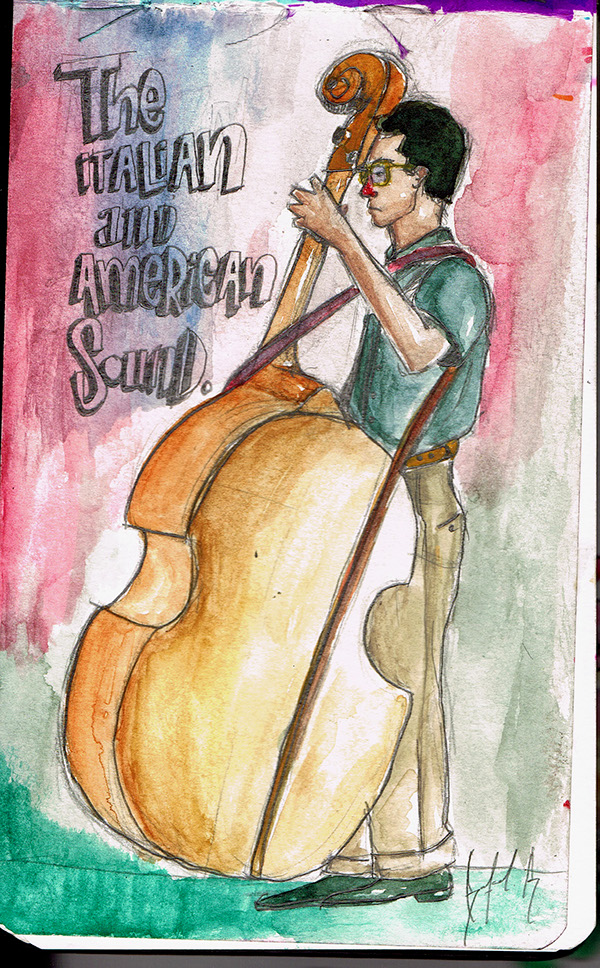 The
ITALIAN
and
AMERICAN
Sound.